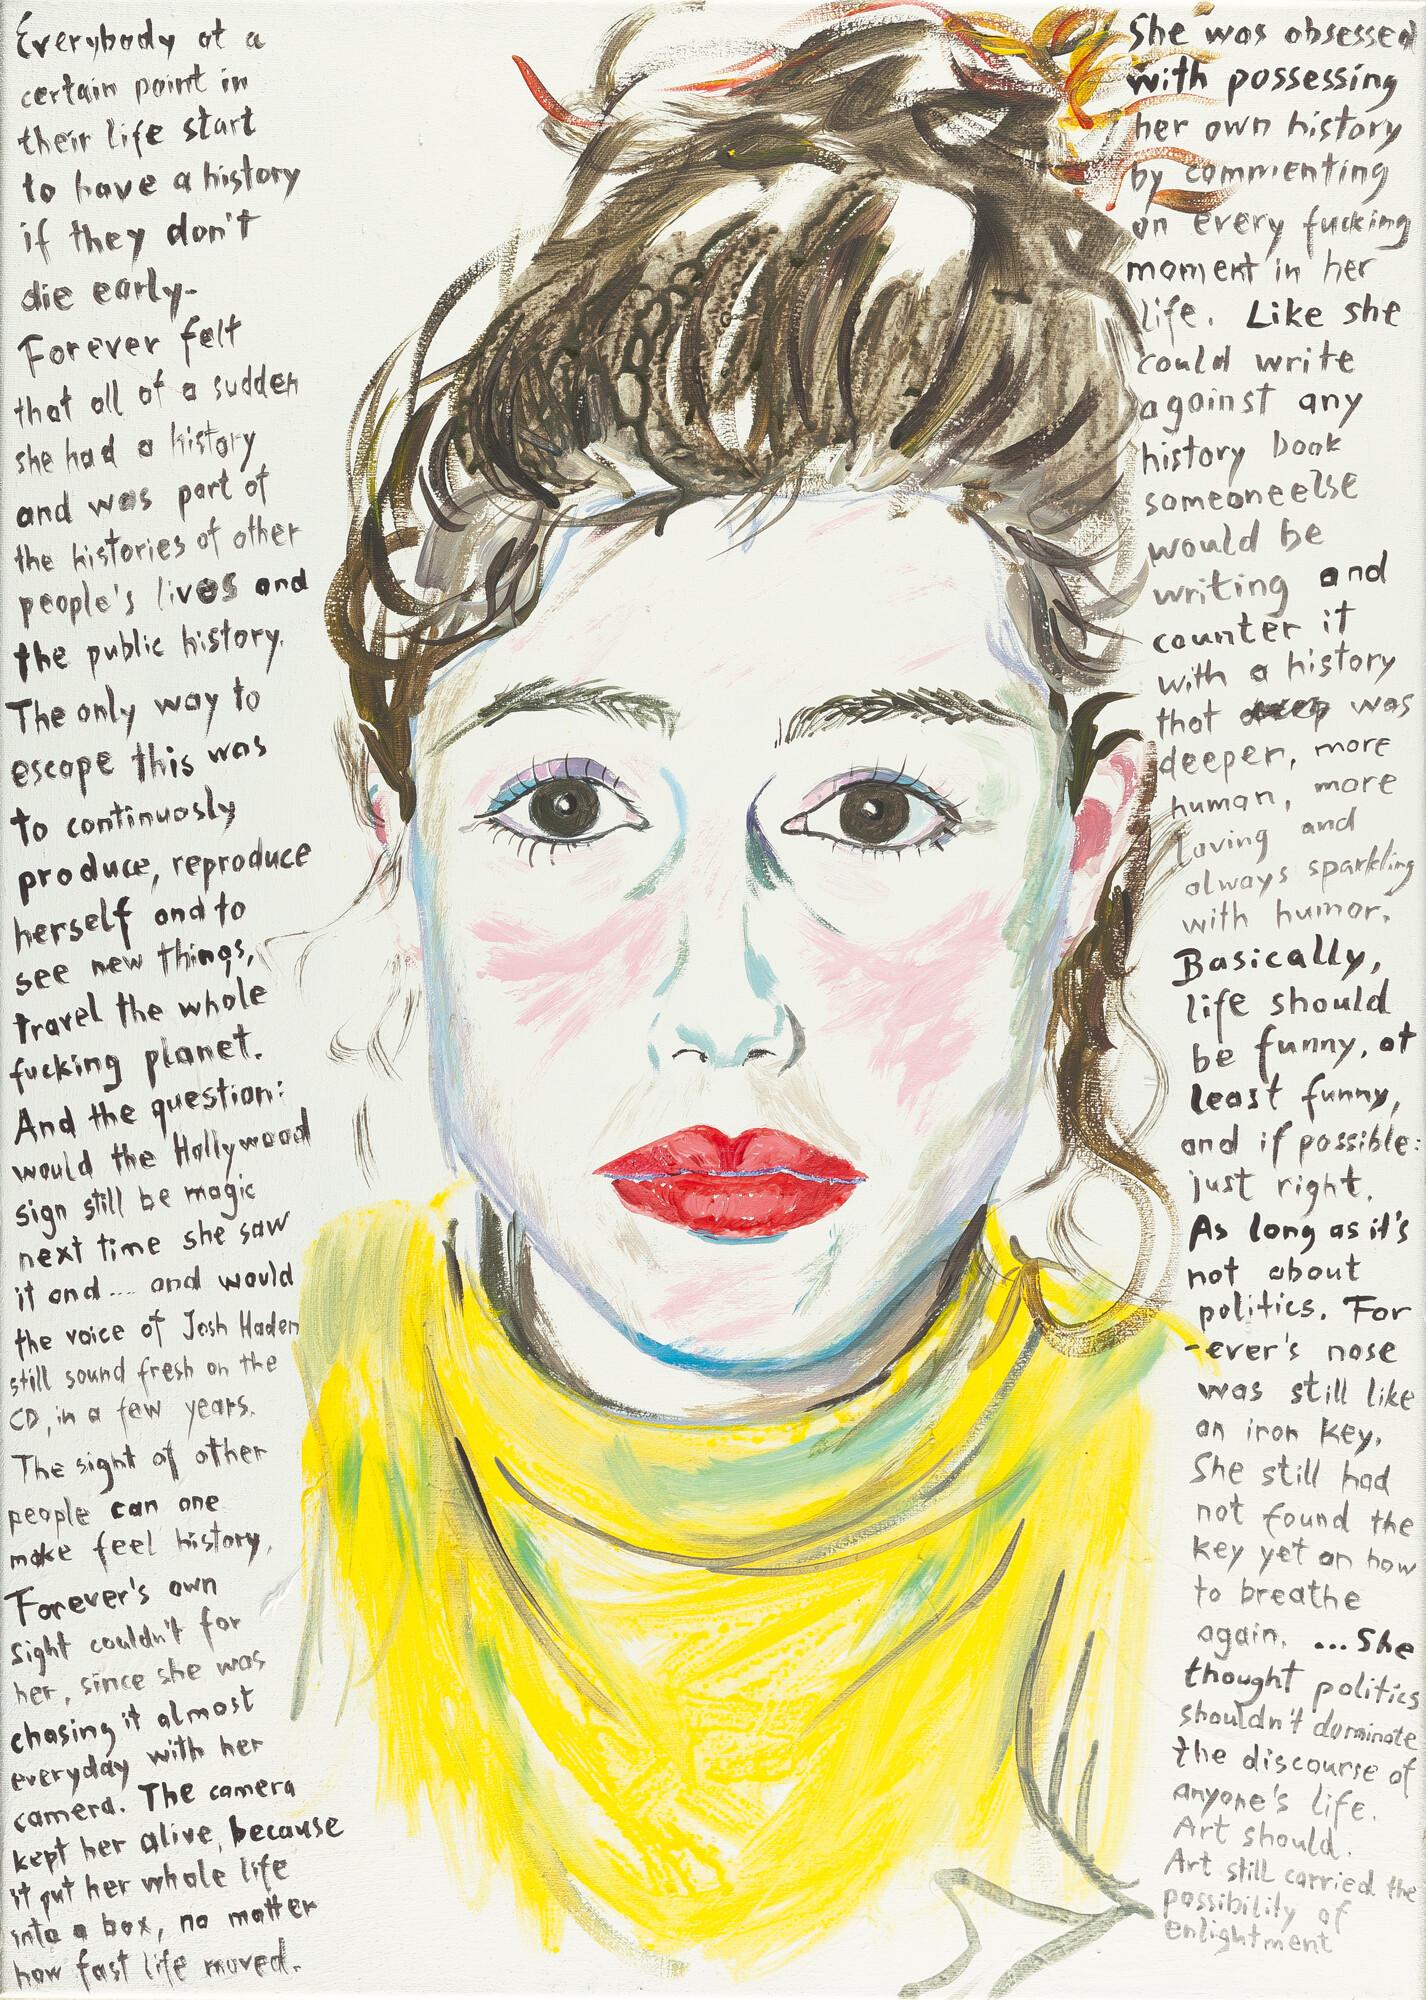 Everybody at a
certain point in
their life start
to have a history
if they don't
die early-
Forever felt
that all of a sudden
she had a history
and was part of
the histories of other
people's lives and
the public history.
The only way to
escape this was
to continuosly
produce, reproduce
herself and to
see new things,
travel the whole
fucking planet.
And the question:
would the Hollywood
sign still be magic
next time she saw
it and .... and would
the voice of Josh Haden
still sound fresh on the
CD, in a few years.
The sight of other
people can one
make feel history.
Forever's own
sight couldn't for
her, since she was
chasing it almost
everyday with her
camera. The camera
kept her alive, because
it put her whole life
into a box, no matter
how fast life moved.
She was obsessed
with possessing
her own history
by commenting
on every fucking
moment in her
life. Like she
could write
against any
history book
someoneelse
would be
writing and
counter it
with a history
that was
deeper, more
human, more
loving and
always sparkling
with humor.
Basically,
life should
be funny, at
least funny,
and if possible:
just right.
As long as it's
not about
politics. For
-ever's nose
was still like
an iron key.
She still had
not found the
key yet on how
to breathe
again. ...She
thought politics
shouldn't dominate
the discourse of
anyone's life.
Art should.
Art still carried the
possibility of
enlightment